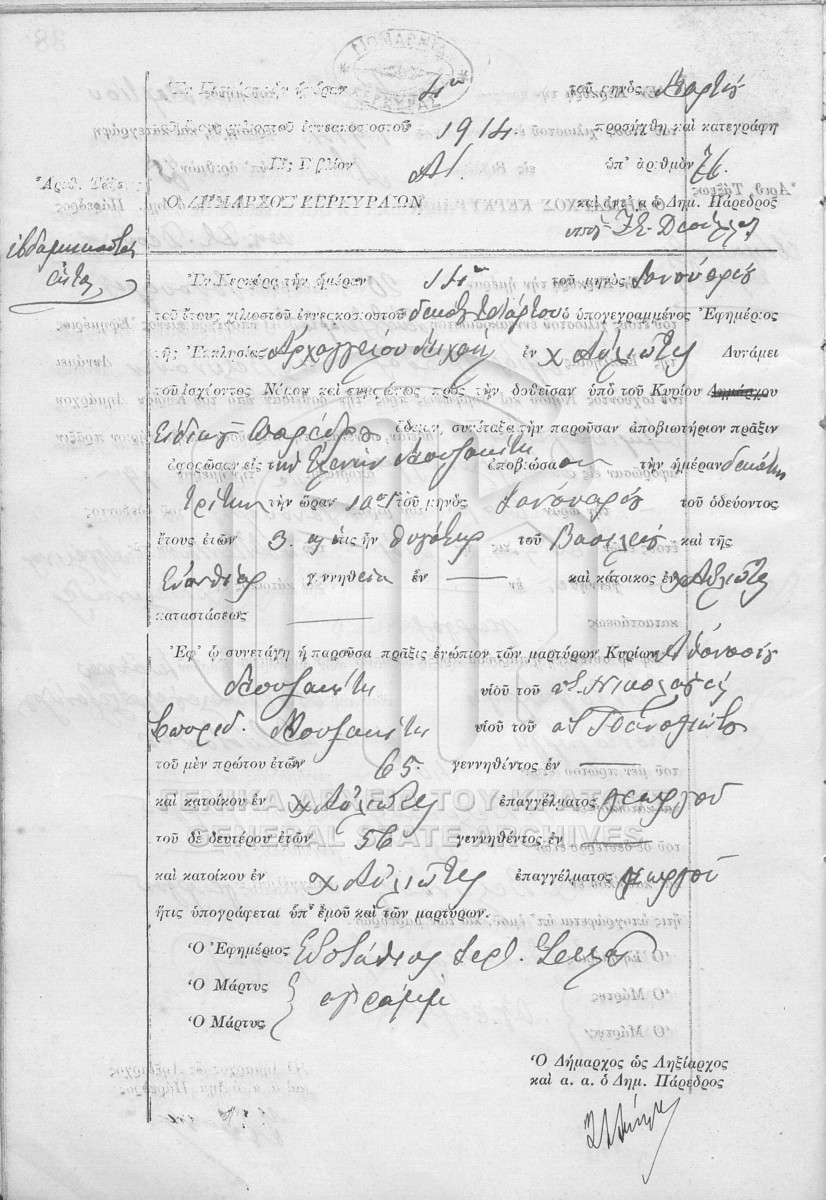 ΚΕΡΚΥΡΑΣ
Ἐν Κερκύρᾳ τὴν ἡμέραν 4ην τοῦ μηνὸς Μαρτίου
τοῦ ἔτους χιλιοστοῦ ἐννεακοσιοστοῦ 1914 προσήχθη καὶ κατεγράφη
Εἰς Βιβλίον ὑπ' ἀριθμὸν 76.
Ἀριθ. Τάξεως
Ο ΔΗΜΑΡΧΟΣ ΚΕΡΚΥΡΑΙΩΝ καὶ ἀντ' α ὁ Δημ. Πάρεδρος
Ἐν Κερκύρᾳ τὴν ἡμέραν 14ην τοῦ μηνὸς Ἰανουαρίου
τοῦ ἔτους χιλιοστοῦ ἐννεακοσιοστοῦ δεκάτου τετάρτου ὁ ὑπογεγραμμένος Ἐφημέριος
τῆς Ἐκκλησίας Ἀρχαγγέλου Μιχαὴλ ἐν χ Αὐλιώτες Δυνάμει
τοῦ ἰσχύοντος Νόμου καὶ συμφώνως πρὸς τὴν δοθεῖσαν ὑπὸ τοῦ Κυρίου Δημάρχου
Εἰδικοῦ Παρέδρου ἄδειαν, συνέταξα τὴν παροῦσαν ἀποβιωτήριον πρᾶξιν
ἀφορῶσαν εἰς τὴν Ἑλένην Μουζακίτη ἀποβιώσασαν τὴν ἡμέραν δεκάτην
τρίτην τὴν ὥραν 10 τοῦ μηνὸς Ἰανουαρίου τοῦ ὁδεύοντος
ἔτους ἐτῶν 3. ἥτις ἦν θυγάτηρ τοῦ Βασιλείου καὶ τῆς
Εὐανθίας γεννηθεῖσα ἐν — καὶ κάτοικος ἐν χ Αὐλιώτες
καταστάσεως —
Ἐφ' ᾧ συνετάγη ἡ παροῦσα πρᾶξις ἐνώπιον τῶν μαρτύρων Κυρίων Ἀθανασίου
Μουζακίτη υἱοῦ τοῦ Νικολάου
Σπυρίδ. Μουζακίτη υἱοῦ τοῦ Παναγιώτου
τοῦ μὲν πρώτου ἐτῶν 65. γεννηθέντος ἐν —
καὶ κατοίκου ἐν χ Αὐλιώτες ἐπαγγέλματος γεωργοῦ
ΓΕΝΙΚΑ ΑΡΧΕΙΑ ΤΟΥ ΚΡΑΤΟΥΣ
GENERAL STATE ARCHIVES
τοῦ δὲ δευτέρου ἐτῶν 56 γεννηθέντος ἐν —
καὶ κατοίκου ἐν χ Αὐλιώτες ἐπαγγέλματος γεωργοῦ
ἥτις ὑπογράφεται ὑπ' ἐμοῦ καὶ τῶν μαρτύρων.
Ὁ Ἐφημέριος Εὐστάθιος Ἱερ.
Ὁ Μάρτυς
ἀγράμμ
Ὁ Μάρτυς
Ὁ Δήμαρχος ὡς Ληξίαρχος
καὶ α. α. ὁ Δημ. Πάρεδρος